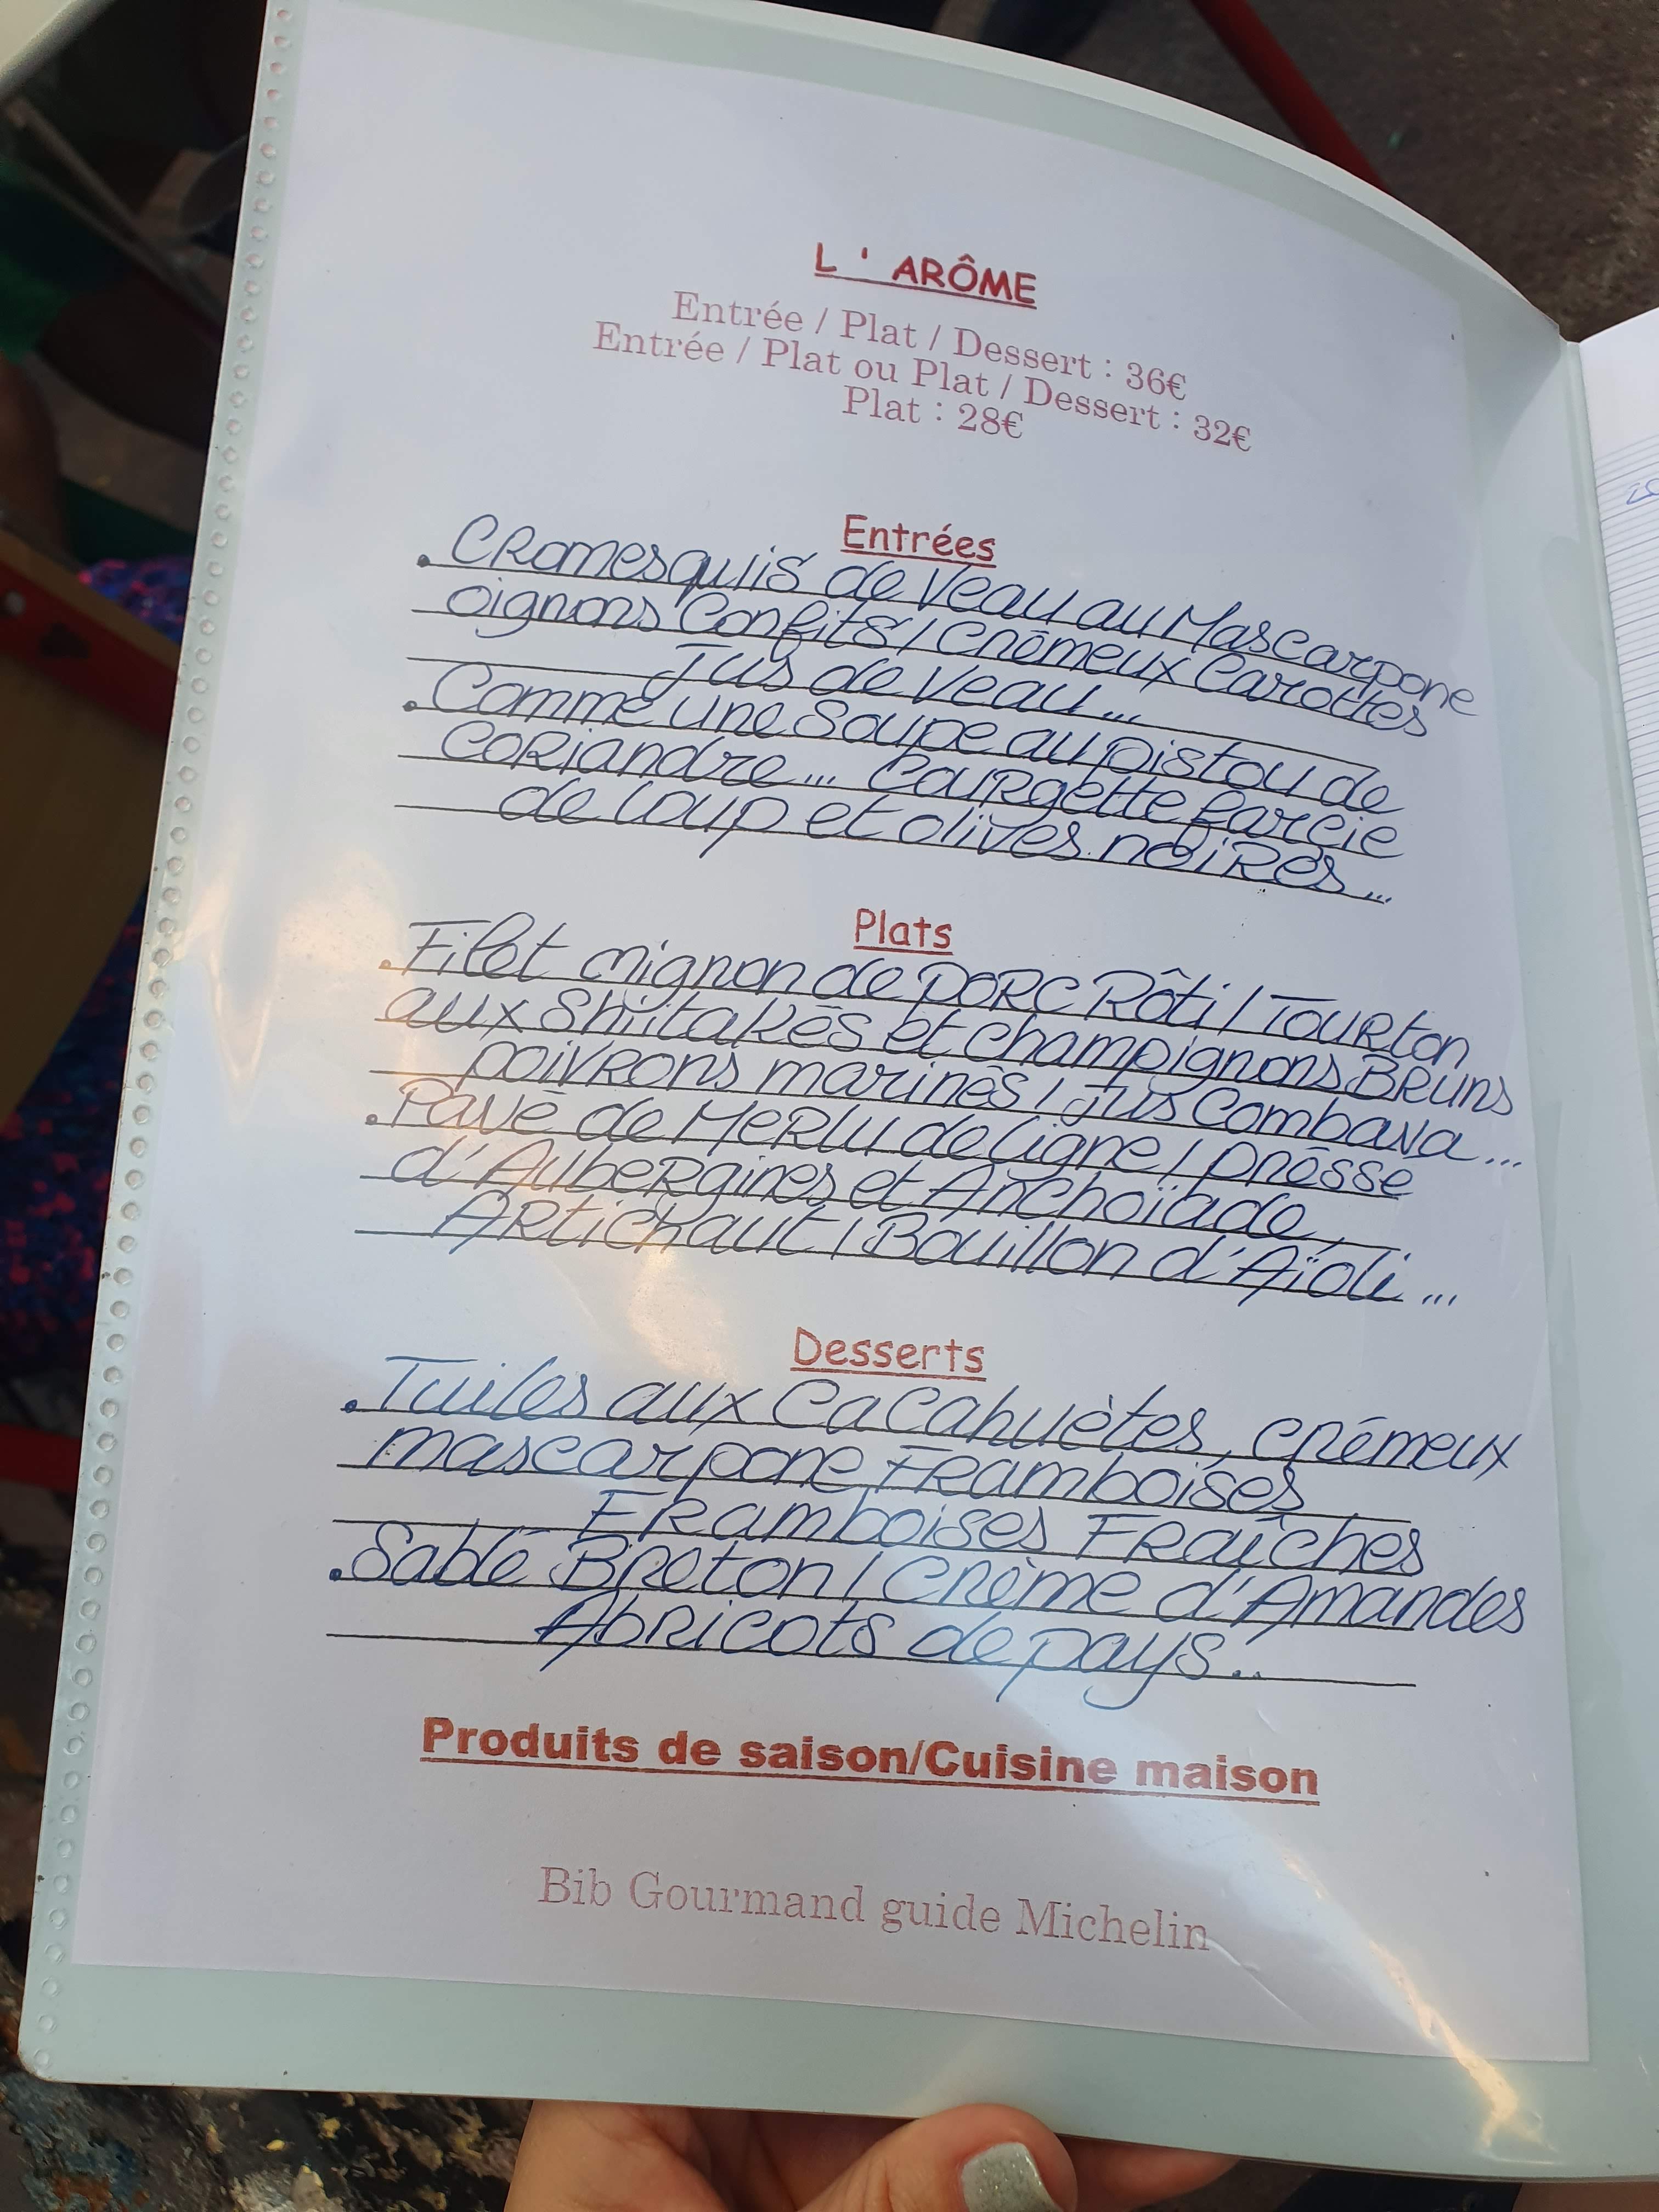 L ' ARÔME
Entrée / Plat / Dessert : 36€
Entrée / Plat ou Plat / Dessert : 32€
Plat : 28€
Entrées
. CRomesquiis de Veau au Mascarpone
oignons Confits / Crémeux Carottes
Jus de Veau...
. Comme une Soupe au pistou de
CORiandre... CouRgette farcie
de loup et olives noiRes...
Plats
. Filet mignon de PORC Rôti / TouRton
aux Shiitakés et champignons BRuns
poivRons marinés / Jus Combava...
. Pavé de MeRlu de ligne / présse
d'AubeRgines et Anchoïade,
ARtichaut / Bouillon d'Aïoli...
Desserts
. Tuiles aux CaCahuètes, crémeux
mascarpone FRamboises
FRamboises FRaîches
. Sablé Breton / Crème d'Amandes
AbRicots de pays..
Produits de saison/Cuisine maison
Bib Gourmand guide Michelin